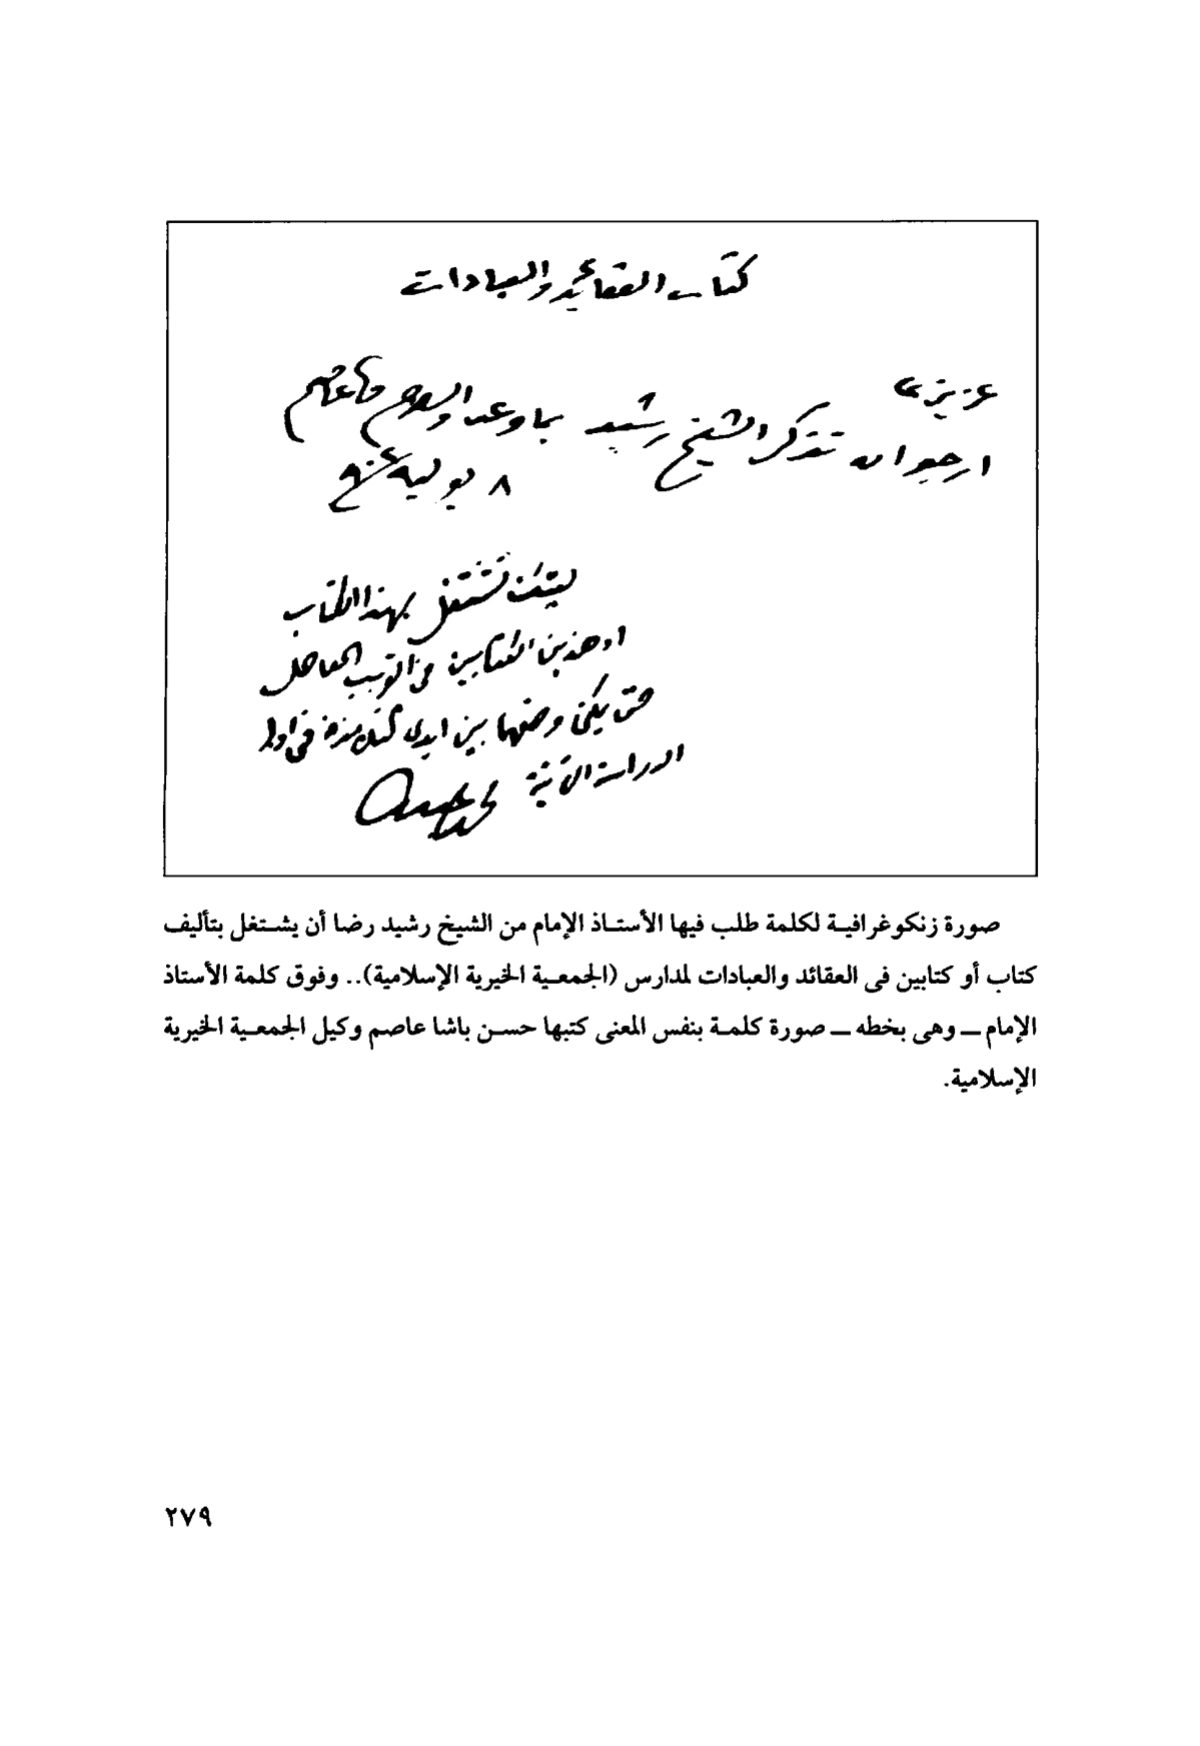 كتاب العقائد والعبادات
عزيزى
ارجو ان تذكر الشيخ رشيد بما وعد والسلام عاصم
٨ يوليه
ليتك تشتغل بهذا الكتاب
او هذين الكتابين فى القريب العاجل
حتى يمكن وضعهما بين ايدى التلامذة فى اول
الدراسة الآتية محمد عبده
صورة زنكوغرافية لكلمة طلب فيها الأستاذ الإمام من الشيخ رشيد رضا أن يشتغل بتأليف
كتاب أو كتابين فى العقائد والعبادات لمدارس (الجمعية الخيرية الإسلامية).. وفوق كلمة الأستاذ
الإمام ــ وهى بخطه ــ صورة كلمة بنفس المعنى كتبها حسن باشا عاصم وكيل الجمعية الخيرية
الإسلامية.
٢٧٩